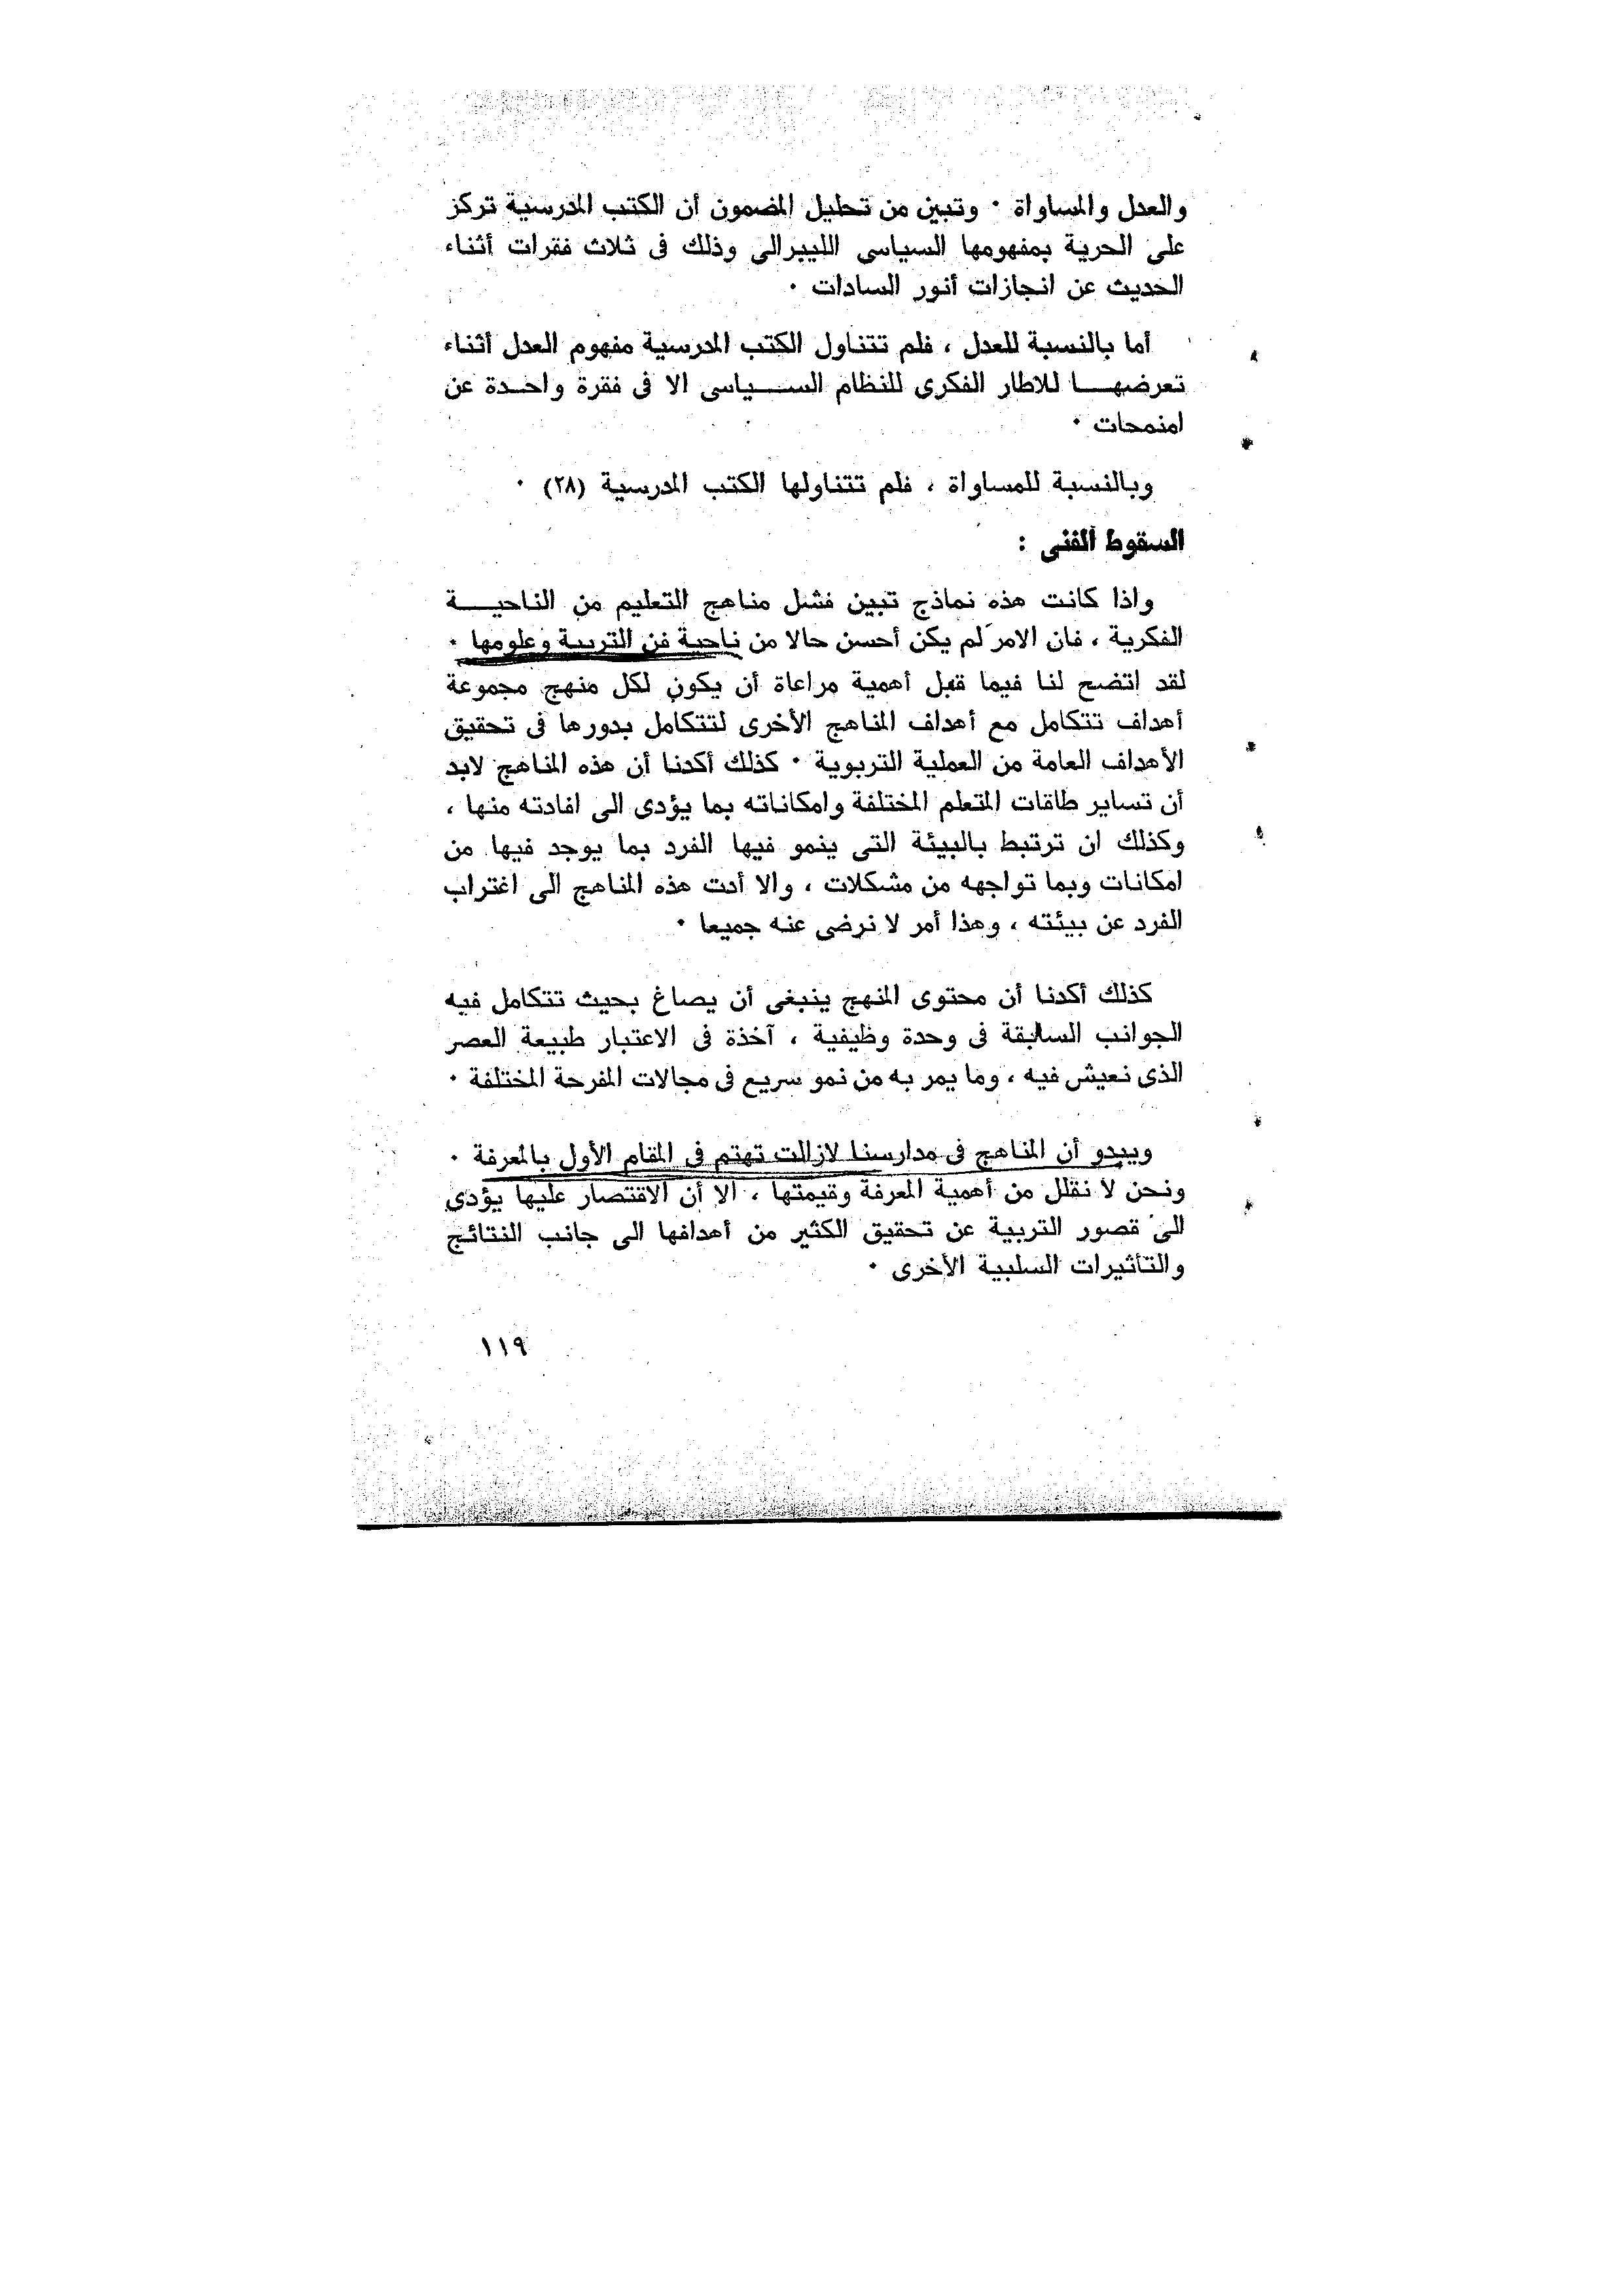 والعدل والمساواة ٠ وتبين من تحليل المضمون أن الكتب المدرسية تركز
على الحرية بمفهومها السياسى الليبرالى وذلك فى ثلاث فقرات أثناء
الحديث عن انجازات أنور السادات ٠
أما بالنسبة للعدل ، فلم تتناول الكتب المدرسية مفهوم العدل أثناء
تعرضهـــا للاطار الفكرى للنظام الســـياسى الا فى فقرة واحـدة عن
امنمحات ٠
وبالنسبة للمساواة ، فلم تتناولها الكتب المدرسية (٢٨) ٠
السقوط الفنى :
واذا كانت هذه نماذج تبين فشل مناهج التعليم من الناحيـــة
الفكرية ، فان الامر لم يكن أحسن حالا من ناحية فن التربية وعلومها ٠
لقد اتضح لنا فيما قبل أهمية مراعاة أن يكون لكل منهج مجموعة
أهداف تتكامل مع أهداف المناهج الأخرى لتتكامل بدورها فى تحقيق
الأهداف العامة من العملية التربوية ٠ كذلك أكدنا أن هذه المناهج لابد
أن تساير طاقات المتعلم المختلفة وامكاناته بما يؤدى الى افادته منها ،
وكذلك ان ترتبط بالبيئة التى ينمو فيها الفرد بما يوجد فيها من
امكانات وبما تواجهه من مشكلات ، والا أدت هذه المناهج الى اغتراب
الفرد عن بيئته ، وهذا أمر لا نرضى عنه جميعا ٠
كذلك أكدنا أن محتوى المنهج ينبغى أن يصاغ بحيث تتكامل فيه
الجوانب السابقة فى وحدة وظيفية ، آخذة فى الاعتبار طبيعة العصر
الذى نعيش فيه ، وما يمر به من نمو سريع فى مجالات المفرحة المختلفة ٠
ويبدو أن المناهج فى مدارسنا لازالت تهتم فى المقام الأول بالمعرفة ٠
ونحن لا نقلل من أهمية المعرفة وقيمتها ، الا أن الاقتصار عليها يؤدى
الى قصور التربية عن تحقيق الكثير من أهدافها الى جانب النتائج
والتأثيرات السلبية الأخرى ٠
١١٩